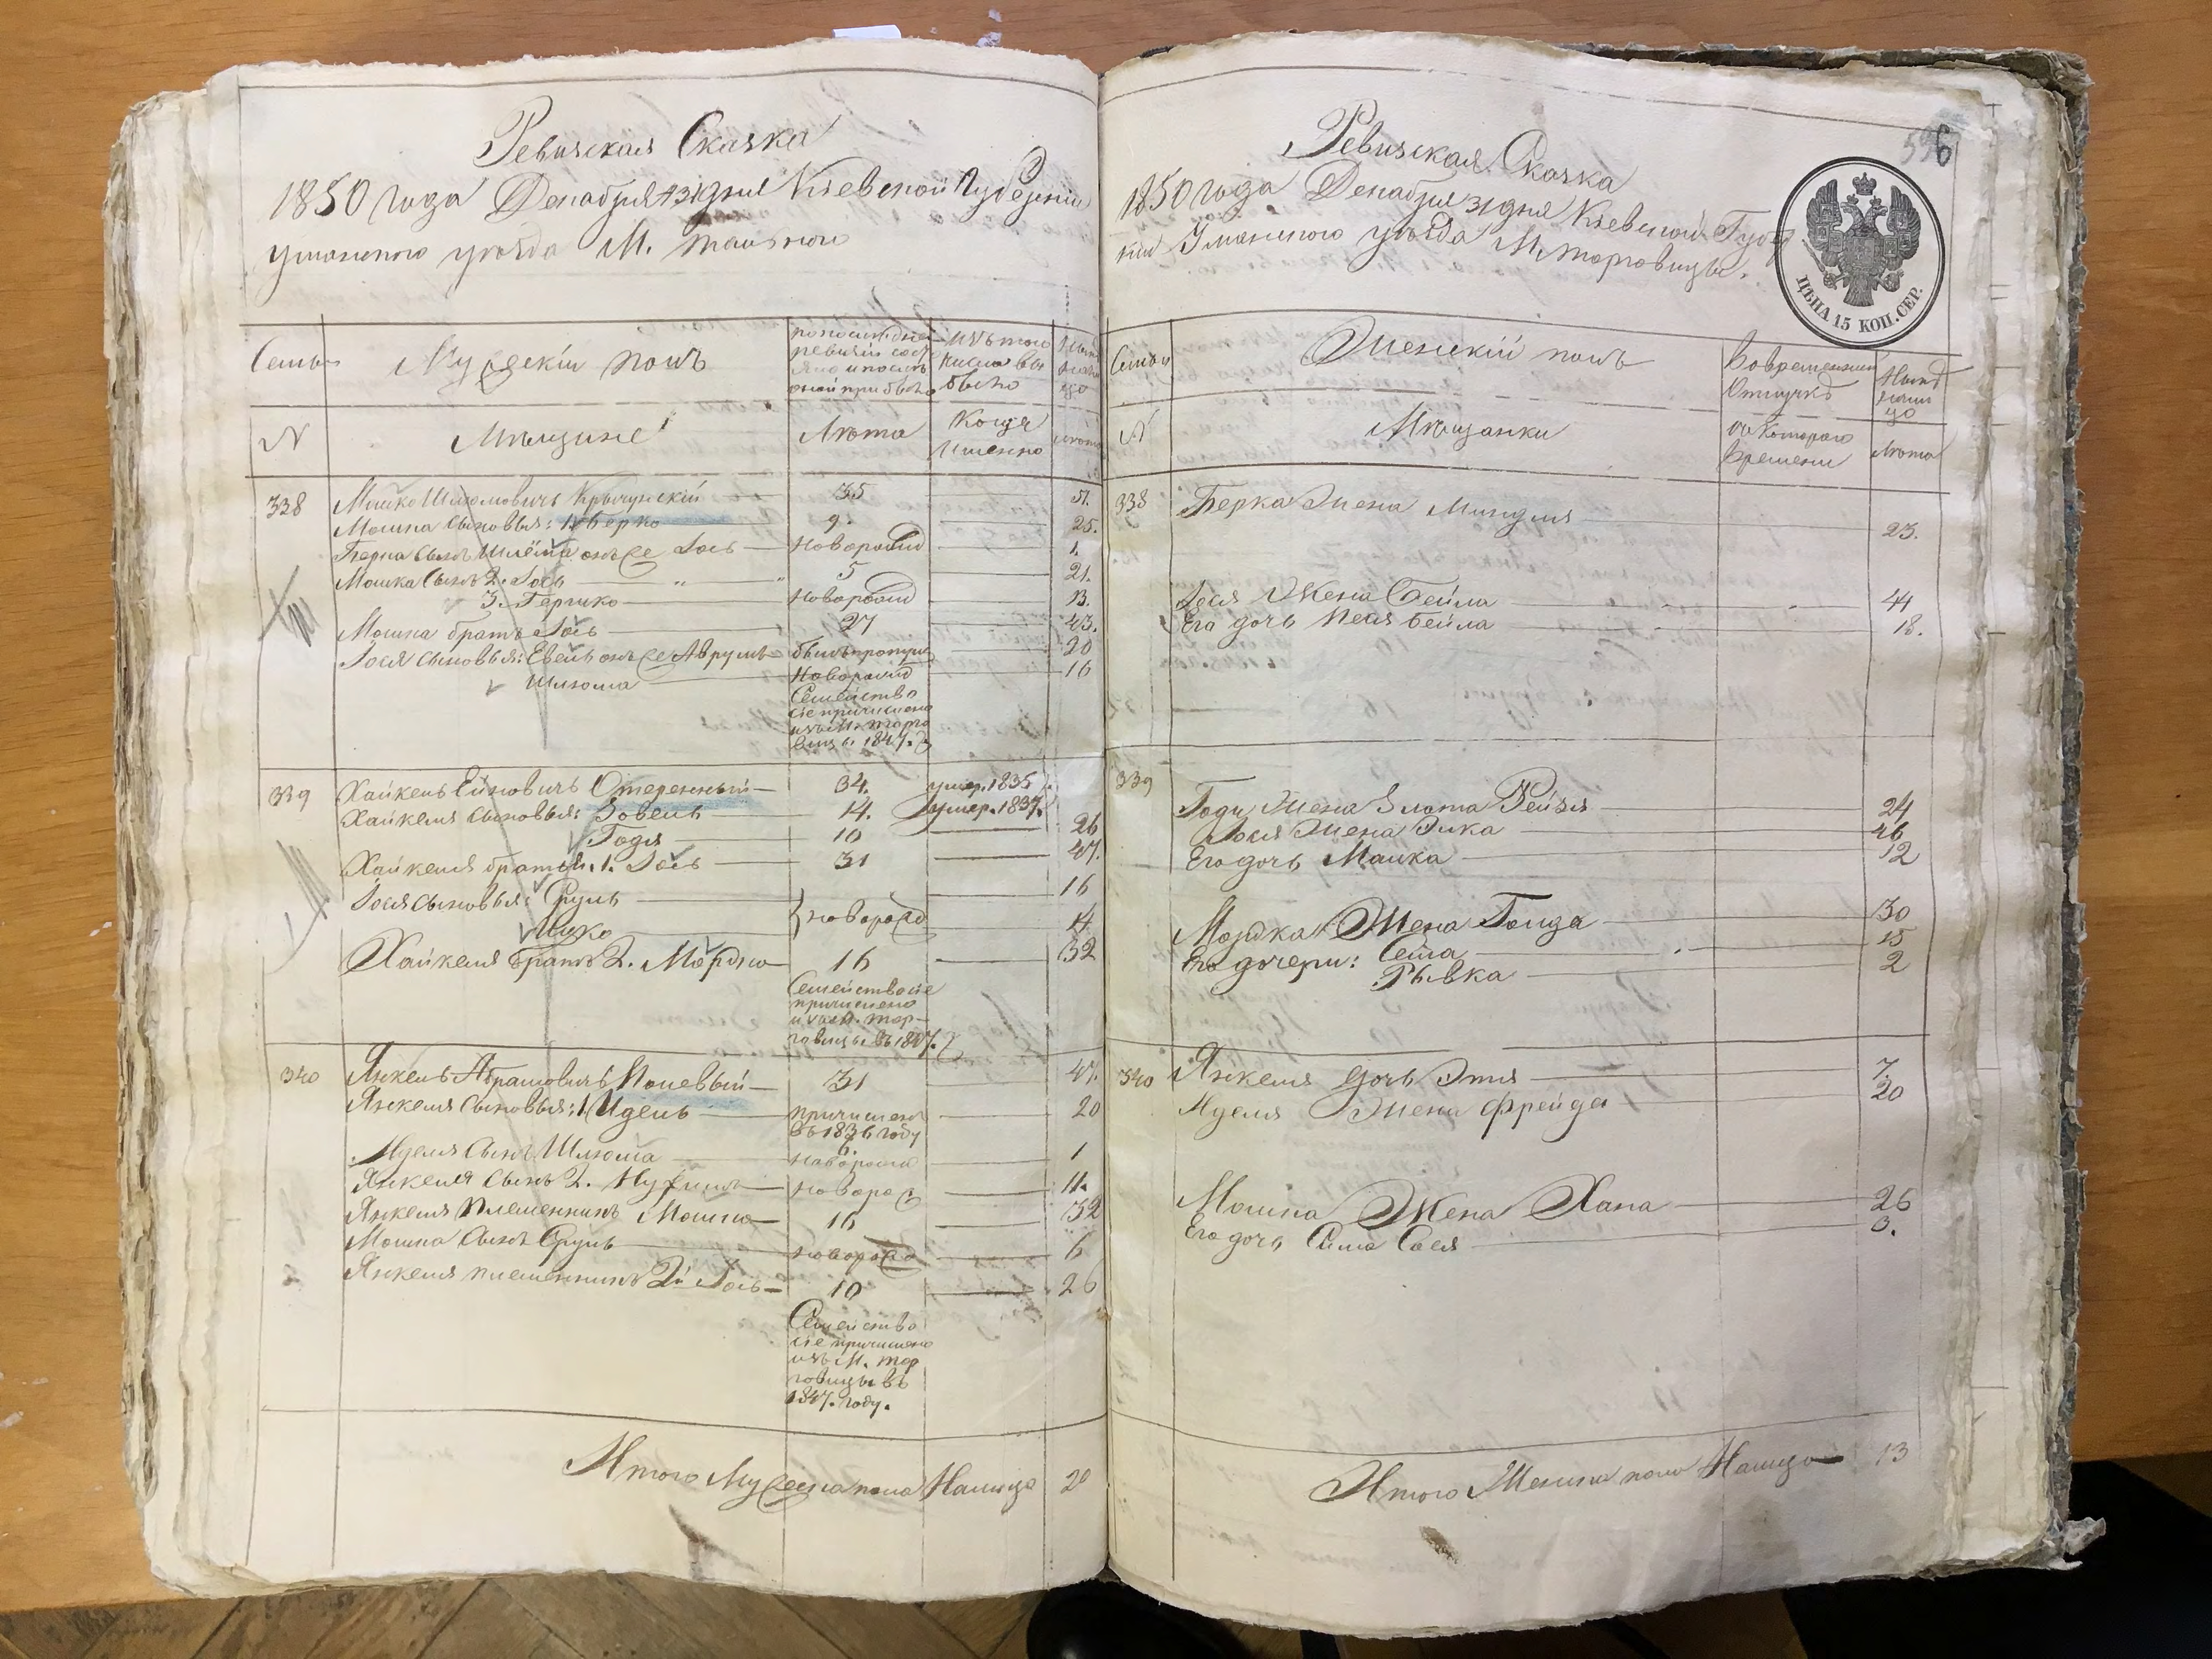 Ревизская Сказка
1850 года Декабря 31 дня Кіевской Губерніи
Уманскаго уѣзда М. Тальнаго
Семьи
Мужескій полъ
По последней ревизіи состояло и послѣ оной прибыло
Изъ того числа выбыло
Нынѣ на лицо
N
Мѣщане
Лѣта
Когда именно
Лѣта
338 Мошко Шлиомовичъ 35 51.
Мошка сыновья: 1. Берко 9. 25.
Берка сынъ Шлёма онъ же Іось Новорожд 1.
Мошка сынъ 2. Іось 5 21.
3. Гершко Новорожд 13.
Мошка братъ Іось 27 43.
Іося сыновья: онъ же Аврумъ былъ пропущ 20
Шлиома Новорожд 16
Семейство
сіе причислено
изъ М. Торго
вицы 1847.
339 Хайкель 34. умер. 1835
Хайкеля сыновья: Зовель 14. умер. 1837.
Годя 10 26
Хайкеля братья. 1. Іось 31 47.
Іося сыновья: Сруль 16
Ицко новорожд 14
Хайкеля братъ 2. Мордко 16 32
Семейство сіе
причислено
изъ М. Тор-
говицы въ 1847.
340 Янкель Абрамовичъ 31 47.
Янкеля сыновья: 1. Идель причисленъ 20
въ 1836 году
6.
Иделя сынъ Шлиома новорожд 1
Янкеля сынъ 2. новорожд 11.
Янкеля племянникъ Мошко 16 32
Мошка сынъ Сруль новорожд 6
Янкеля племянникъ 2й Іось 10 26
Семейство
сіе причислено
изъ М. Тор
говицы въ
1847. году.
Итого Мужеска пола Налицо 20
Ревизская Сказка
596
1850 года Декабря 31 дня Кіевской Губер
ніи Уманскаго уѣзда М. Торговицы.
ЦѢНА 15 КОП. СЕР.
Семьи
Женскій полъ
Во временной отлучкѣ
Нынѣ на лицо
N
Мѣщанки
Съ котораго времени
Лѣта
338 Берка Жена Миндля 23.
Іося Жена Бейла 44
Его дочь Песя Бейла 18.
339
Годи Жена Злота Рейзя 24
Іося Жена Эйка 46
Его дочь Малка 12
Мордка Жена Голда 30
Его дочери: Сейта 15
Рывка 2
340 Янкеля дочь Этля 7.
Иделя Жена Фрейда 20
Мошка Жена Хана 26
Его дочь Сима Сося 3.
Итого Женска пола Налицо 13